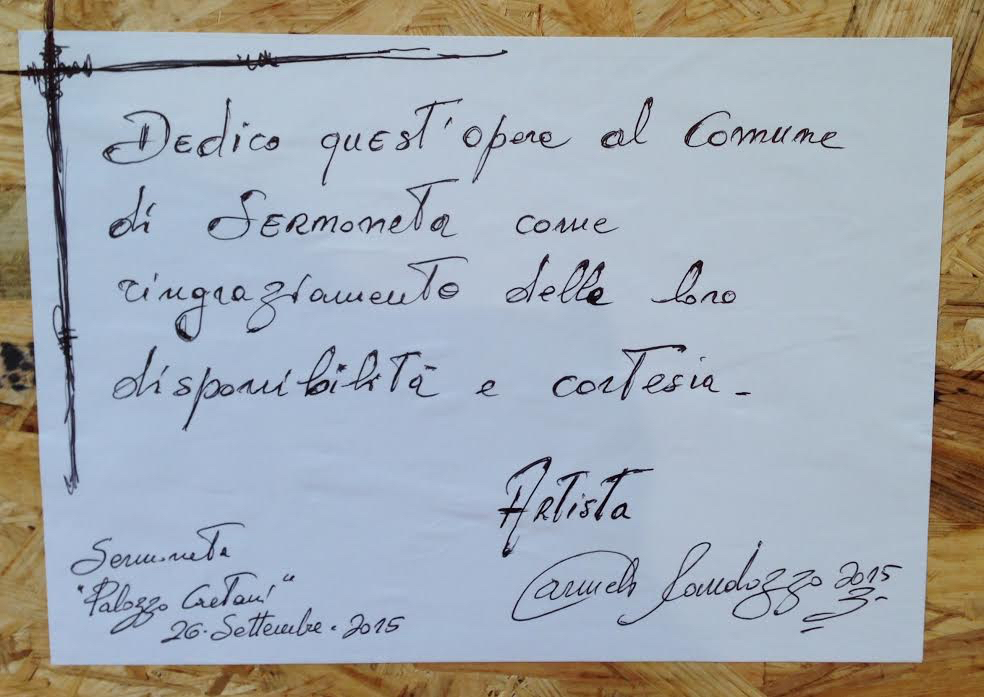 Dedico quest'opera al Comune
di Sermoneta come
ringraziamento della loro
disponibilità e cortesia -
Artista
Sermoneta
"Palazzo Caetani"
26. Settembre. 2015
2015